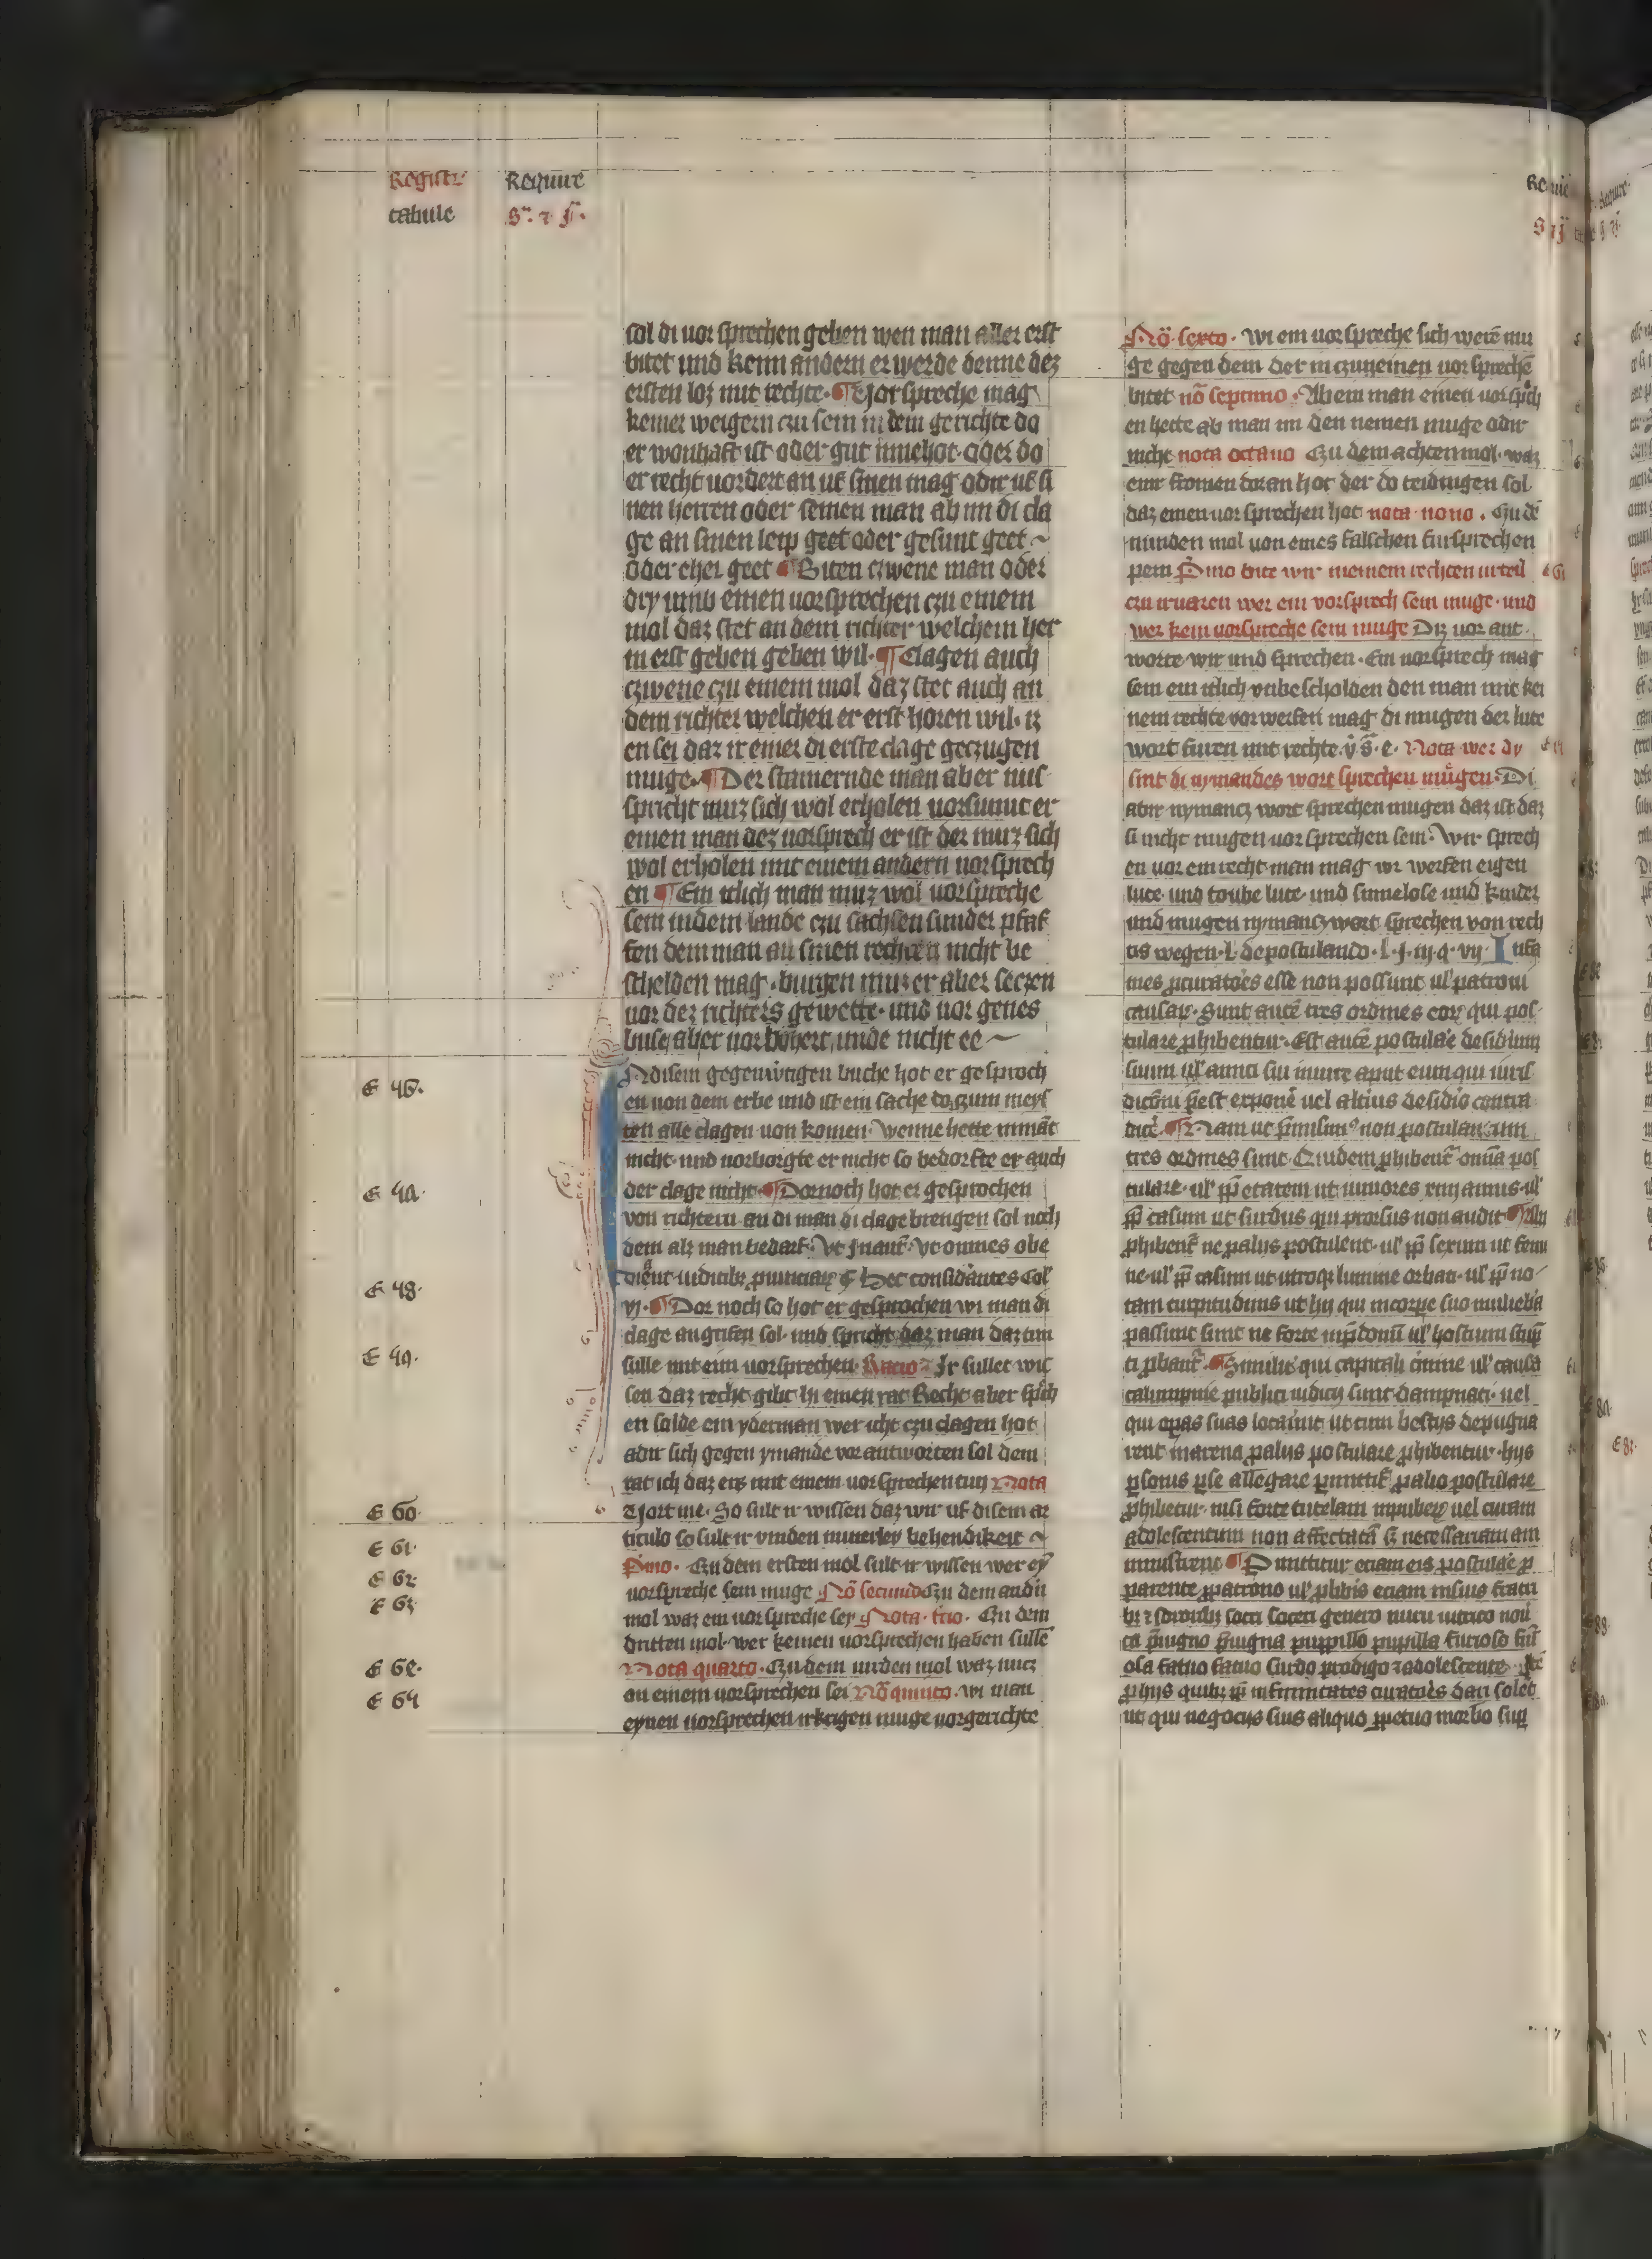 Registr Require
tabule
sol di uor sprechen geben wen man aller erst
bitet und kenn andern er werde denne dez
ersten loz mit rechte. Vorspreche mag
keiner weigern czu sein in dem gerichte do
er wonhaft ist oder gut innehot. oder do
er recht uordert an uf sinen mag odir uf si
nen herren oder seinen man ab im di cla
ge an sinen leip geet oder gesunt geet
oder eher geet Biten czwene man oder
dry umb einen uorsprechen czu einem
mol daz stet an dem richter welchem her
in erst geben geben wil. Clagen auch
czwene czu einem mol daz stet auch an
dem richter welchen er erst horen wil. iz
en sei daz ir einer di erste clage geczugen
muge. Der stamernde man aber mis
spricht muz sich wol erholen uorsumt er
einen man dez uorsprech er ist der muz sich
wol erholen mit einem andern uorsprech
en Ein itlich man muz wol uorspreche
sein in dem lande czu sachsen sunder pfaf
fen dem man an sinen rechten nicht be
schelden mag. burgen muz er aber seczen
uor dez richters gewette. und uor genes
buse aber uor bohert unde nicht ee
E 46. N disem gegenwrtigen buche hot er gesproch
en uon dem erbe und ist ein sache do czum meys
ten alle clagen uon komen. Wenne hette niman
nicht. und uorborgte er nicht so bedorfte er auch
E 4A. der clage nicht. Dornoch hot er gesprochen
von richtern an di man di clage brengen sol noch
dem alz man bedarf. Vt in aut. Vt omnes obe
E 48. diant iudicibz prouinciarum Hec considerantes Col
vj. Dor noch so hot er gesprochen wi man di
clage angrifen sol. und spricht daz man daz tun
E 49. sulle mit eim uorsprechen. Racio Ir sullet wis
sen daz recht gibt in einen rat Recht aber sprich
en solde ein yderman wer icht czu clagen hot
adir sich gegen ymande vor antworten sol dem
rat ich daz ers mit einem uorsprechen tun Nota
E 60. So sult ir wissen daz wir uf disem ar
E 61. ticulo so sult ir vinden nunerley behendikeit
E 62 Primo. Czu dem ersten mol sult ir wissen wer ey
E 63 uorspreche sein muge No secundo Czu dem andirn
mol waz ein uorspreche sey Nota. tcio. Czu dem
dritten mol. wer keinen uorsprechen haben sulle
E 6e. Nota quarto. Czu dem uirden mol waz nucz
E 64 an einem uorsprechen sei No quinto. wi man
eynen uorsprechen irkrigen muge uorgerichte
No sexto. Wi ein uorspreche sich were mu
ge gegen dem der in czu einen uorspreche
bitet no septimo. Ab ein man einen uorsprich
en hette ab man im den nemen muge odir
nicht nota octauo Czu dem achten mol. waz
eimr fromen doran hot der do teidingen sol
daz einen uor sprechen hot nota. nono. Czu de
nunden mol uon eines falschen fursprechen
pein Primo bite wir meinem rechten urteil
czu iruaren wer ein vorsprech sein muge. und
wer kein uorspreche sein muge Diz uor ant.
worte wir und sprechen. Ein uorsprech mag
sein ein itlich vnbescholden den man mit kei
nem rechte vor werfen mag di mugen der lute
wort furen mit rechte. Nota wer dy
sint di nymandes wort sprechen mugen. Di
abir nymancz wort sprechen mugen daz ist daz
si nicht mugen uor sprechen sein. Wir sprech
en uor ein recht. man mag vor werfen eigen
lute. und toube lute. und sinnelose und kinder
und mugen nymancz wort sprechen von rech
tis wegen. l. de postulando. l. j. iij. q. vij Infa
mes procuratores esse non possunt ul' patroni
causar. Sunt aute tres ordines eor qui pos
tulare phibentur. Est aute postulare desiderium
suum ul' amici sui in iure aput eum qui iuris
dictoni pest exponere uel alterius desiderio contra
dicere. Nam ut simus non postulancium
tres ordines sunt. Quidem phibent omnia pos
tulare. ul' ppt etatem ut iuniores xvij annis. ul'
ppt casum ut surdus qui prorsus non audit. Alij
phibent ne pro alijs postulent. ul' ppt sexum ut femi
ne. ul' ppt casum ut utroque lumine orbati. ul' ppt no
tam turpitudinis ut hij qui in corpore suo muliebria
passi sunt sint ne forte ui predonum ul' hostium stup
ti probant. Similiter qui capitali crimine ul' causa
calumpnie publici iudicij sunt dampnati. uel
qui operas suas locaint ut cum bestijs depugna
rent in arena pro alijs postulare phibentur. hijs
psonis pro se allegare pmittit. pro alio postulare
phibetur. nisi forte tutelam inpuberum uel curam
adolescentum non affectatam sed necessariam am
ministrent Pmittitur eciam eis postulare p
parente ppatrono ul' pliberis eciam in suis fratri
socru soceri genero nurui uitrico nou
ca priuigno priuigna pupillo pupilla furioso furi
osa fatuo fatua surdo prodigo adolescente.
phijs quibz ppt infirmitates curatores dari solet
ut qui negocijs suis aliquo ppetuo morbo sup